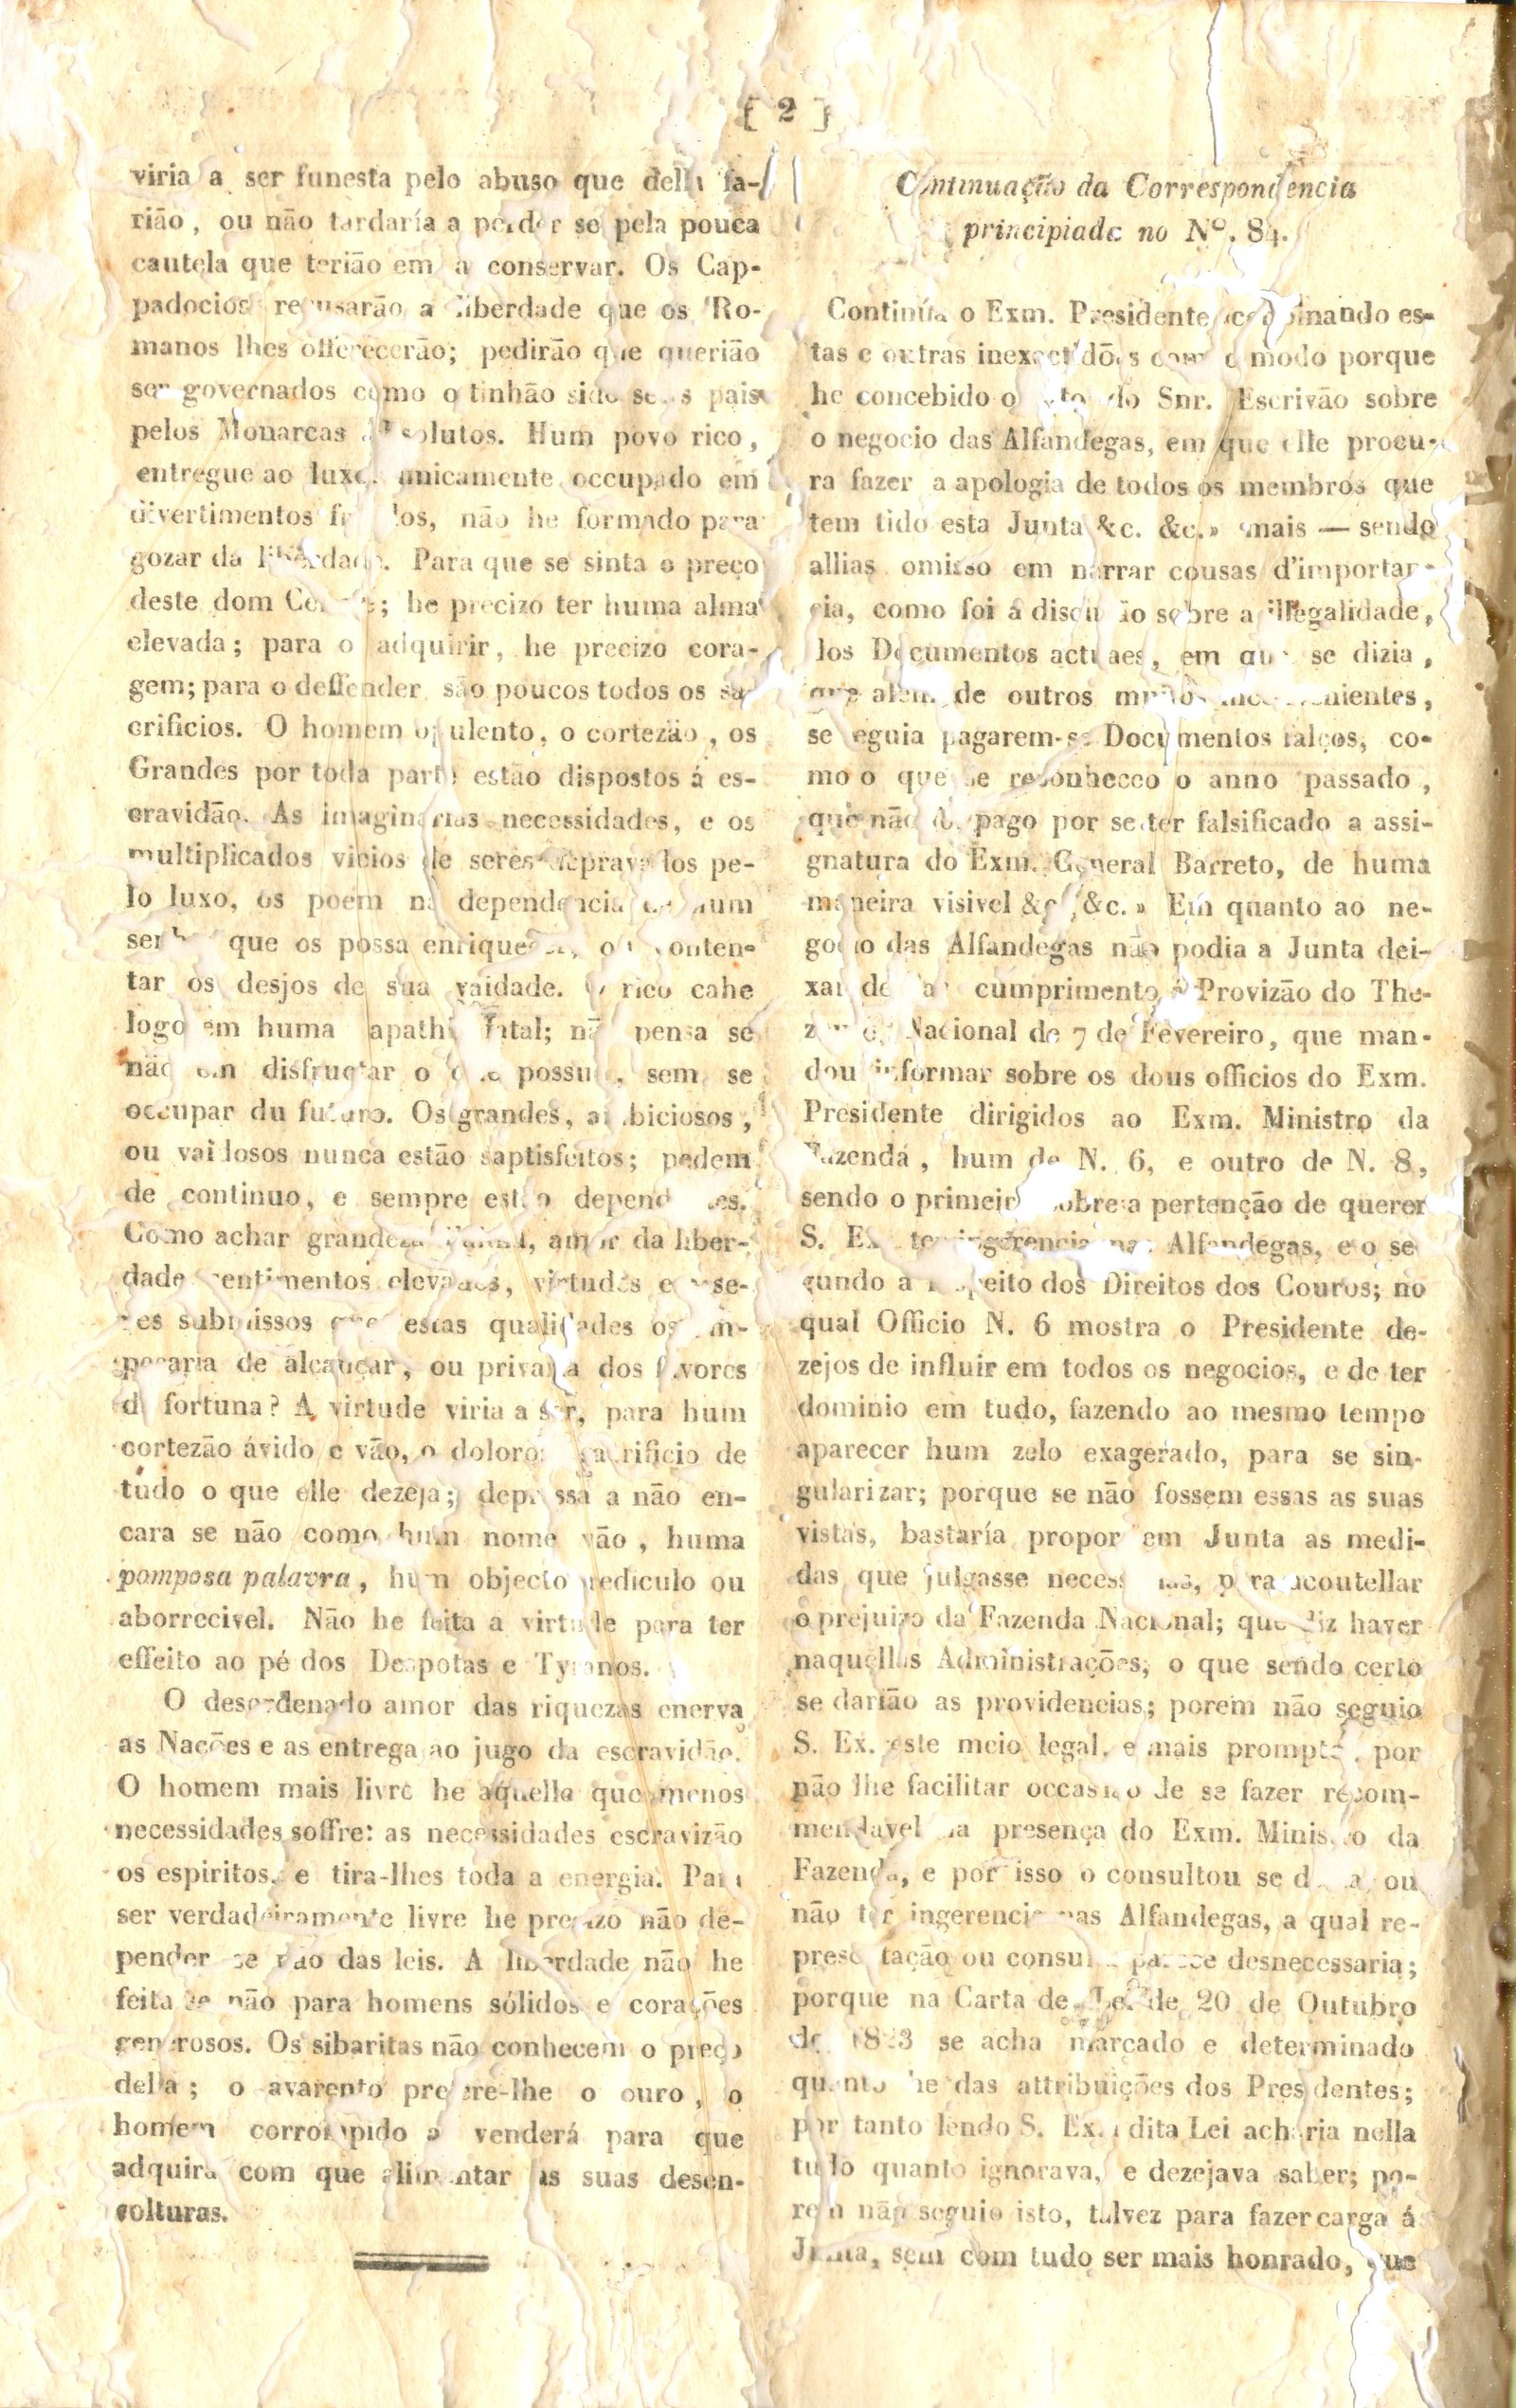 [ 2 ]
viria a ser funesta pelo abuso que della fa-
rião, ou não tardaría a perder se pela pouca
cautela que terião em a conservar. Os Cap-
padocios recusarão a liberdade que os Ro-
manos lhes offerecerão; pedirão que querião
ser governados como o tinhão sido seus pais
pelos Monarcas absolutos. Hum povo rico,
entregue ao luxo, unicamente occupado em
divertimentos não he formado para
gozar da liberdade. Para que se sinta o preço
deste dom Celeste; he precizo ter huma alma
elevada; para o adquirir, he precizo cora-
gem; para o deffender são poucos todos os sa-
crificios. O homem opulento, o cortezão, os
Grandes por toda parte estão dispostos á es-
cravidão. As imaginarias necessidades, e os
multiplicados vicios de seres depravados pe-
lo luxo, os poem na dependencia de hum
senhor que os possa enriquecer, ou conten-
tar os desjos de sua vaidade. O rico cahe
logo em huma apathia fatal; não pensa se
não em disfructar o que possue, sem se
occupar du futuro. Os grandes, ambiciosos,
ou vaidosos nunca estão saptisfeitos; pedem
de continuo, e sempre estão dependentes.
Como achar grandeza d'alma, amor da liber-
dade sentimentos elevados, virtudes em se-
res submissos que estas qualidades os im-
pecaria de alcançar, ou privaria dos favores
da fortuna? A virtude viria a ser, para hum
cortezão ávido e vão, o doloroso sacrificio de
tudo o que elle dezeja; depressa a não en-
cara se não como hum nome vão, huma
pomposa palavra, hum objecto rediculo ou
aborrecivel. Não he feita a virtude para ter
effeito ao pé dos Despotas e Tyranos.
O desordenado amor das riquezas enerva
as Nações e as entrega ao jugo da escravidão.
O homem mais livre he aquelle que menos
necessidades soffre: as necessidades escravizão
os espiritos, e tira-lhes toda a energia. Para
ser verdadeiramente livre he precizo não de-
pender se não das leis. A liberdade não he
feita se não para homens sólidos e corações
generosos. Os sibaritas não conhecem o preço
della; o avarento prefere-lhe o ouro, o
homem corrompido a venderá para que
adquira com que alimentar as suas desen-
volturas.
Continuação da Correspondencia
principiada no Nº. 84.
Continúa o Exm. Presidente acriminando es-
tas e outras inexactidões com o modo porque
he concebido o voto do Snr. Escrivão sobre
o negocio das Alfandegas, em que elle procu-
ra fazer a apologia de todos os membros que
tem tido esta Junta &c. &c.» mais — sendo
allias omisso em narrar cousas d'importan-
cia, como foi a discussão sobre a illegalidade,
dos Documentos actuaes, em que se dizia,
que alem de outros muitos inconvenientes,
se seguia pagarem-se Documentos falços, co-
mo o que se reconheceo o anno passado,
que não foi pago por se ter falsificado a assi-
gnatura do Exm. General Barreto, de huma
maneira visivel &c. &c.» Em quanto ao ne-
gocio das Alfandegas não podia a Junta dei-
xar de dar cumprimento á Provizão do The-
zouro Nacional de 7 de Fevereiro, que man-
dou informar sobre os dous officios do Exm.
Presidente dirigidos ao Exm. Ministro da
Fazenda, hum de N. 6, e outro de N. 8,
sendo o primeiro sobre a pertenção de querer
S. Ex. ter ingerencia nas Alfandegas, e o se
gundo a respeito dos Direitos dos Couros; no
qual Officio N. 6 mostra o Presidente de-
zejos de influir em todos os negocios, e de ter
dominio em tudo, fazendo ao mesmo tempo
aparecer hum zelo exagerado, para se sin-
gularizar; porque se não fossem essas as suas
vistas, bastaría propor em Junta as medi-
das que julgasse necessarias, para acoutellar
o prejuizo da Fazenda Nacional; que diz haver
naquellas Administrações, o que sendo certo
se darião as providencias; porem não seguio
S. Ex. este meio legal, e mais prompto, por
não lhe facilitar occasião de se fazer recom-
mendavel na presença do Exm. Ministro da
Fazenda, e por isso o consultou se devia, ou
não ter ingerencia nas Alfandegas, a qual re-
presentação ou consulta parece desnecessaria;
porque na Carta de Lei de 20 de Outubro
de 1823 se acha marcado e determinado
quanto he das attribuições dos Presidentes;
por tanto lendo S. Ex. a dita Lei acharia nella
tudo quanto ignorava, e dezejava saber; po-
rem não seguio isto, talvez para fazer carga á
Junta, sem com tudo ser mais honrado, que